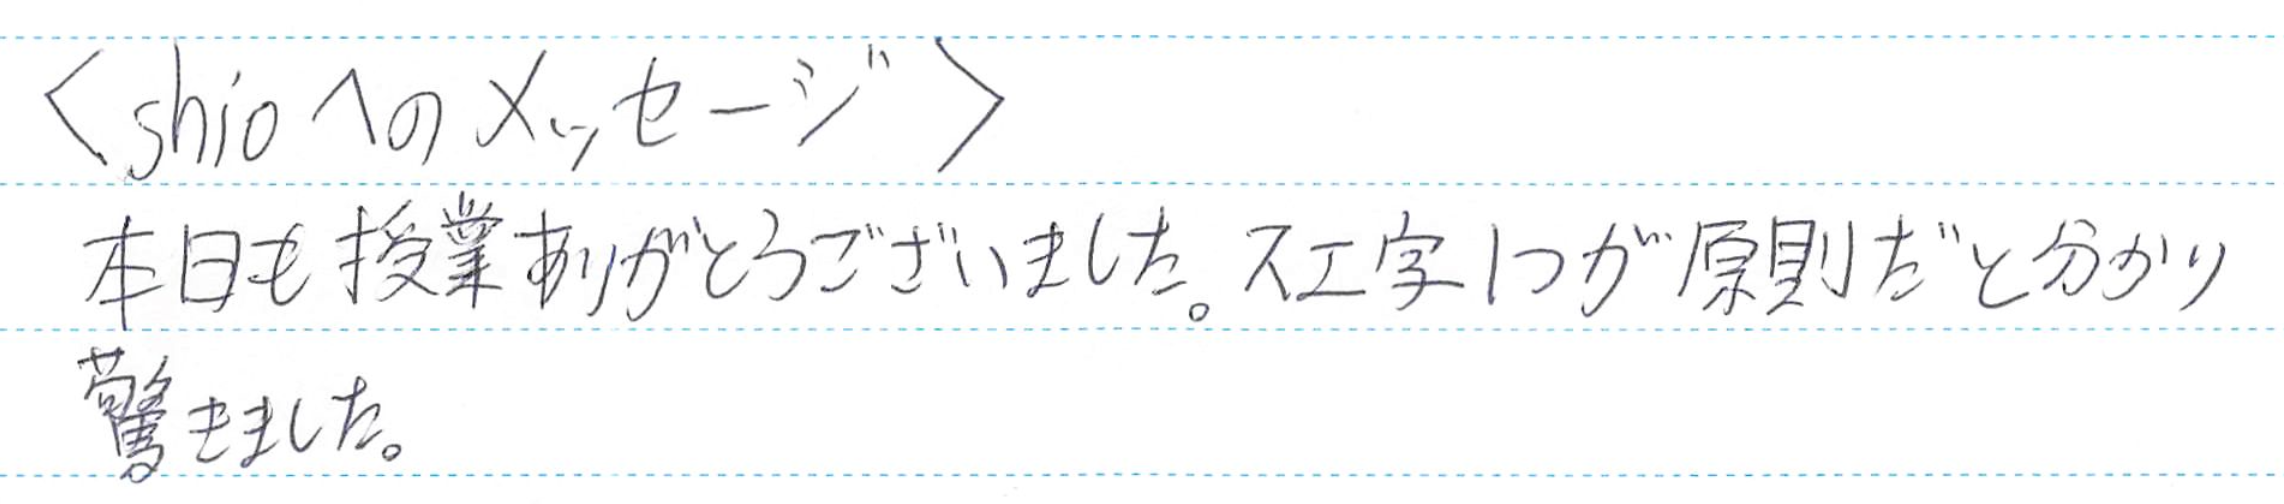 <shioへのメッセージ>
本日も授業ありがとうございました。スエ字1つが原則だと分かり
驚きました。